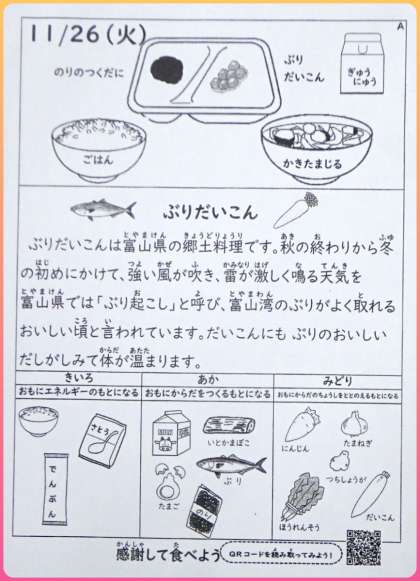 11/26(火)
A
のりのつくだに
ぶり
だいこん
ぎゅう
にゅう
ごはん
かきたまじる
ぶりだいこん
ぶりだいこんは富山県の郷土料理です。秋の終わりから冬
の初めにかけて、強い風が吹き、雷が激しく鳴る天気を
富山県では「ぶり起こし」と呼び、富山湾のぶりがよく取れる
おいしい頃と言われています。だいこんにも ぶりのおいしい
だしがしみて体が温まります。
きいろ
おもにエネルギーのもとになる
さとう
でんぷん
あか
おもにからだをつくるもとになる
いとかまぼこ
ぶり
たまご
のり
みどり
おもにからだのちょうしをととのえるもとになる
にんじん
たまねぎ
つちしょうが
ほうれんそう
だいこん
感謝して食べよう
QRコードを読み取ってみよう!